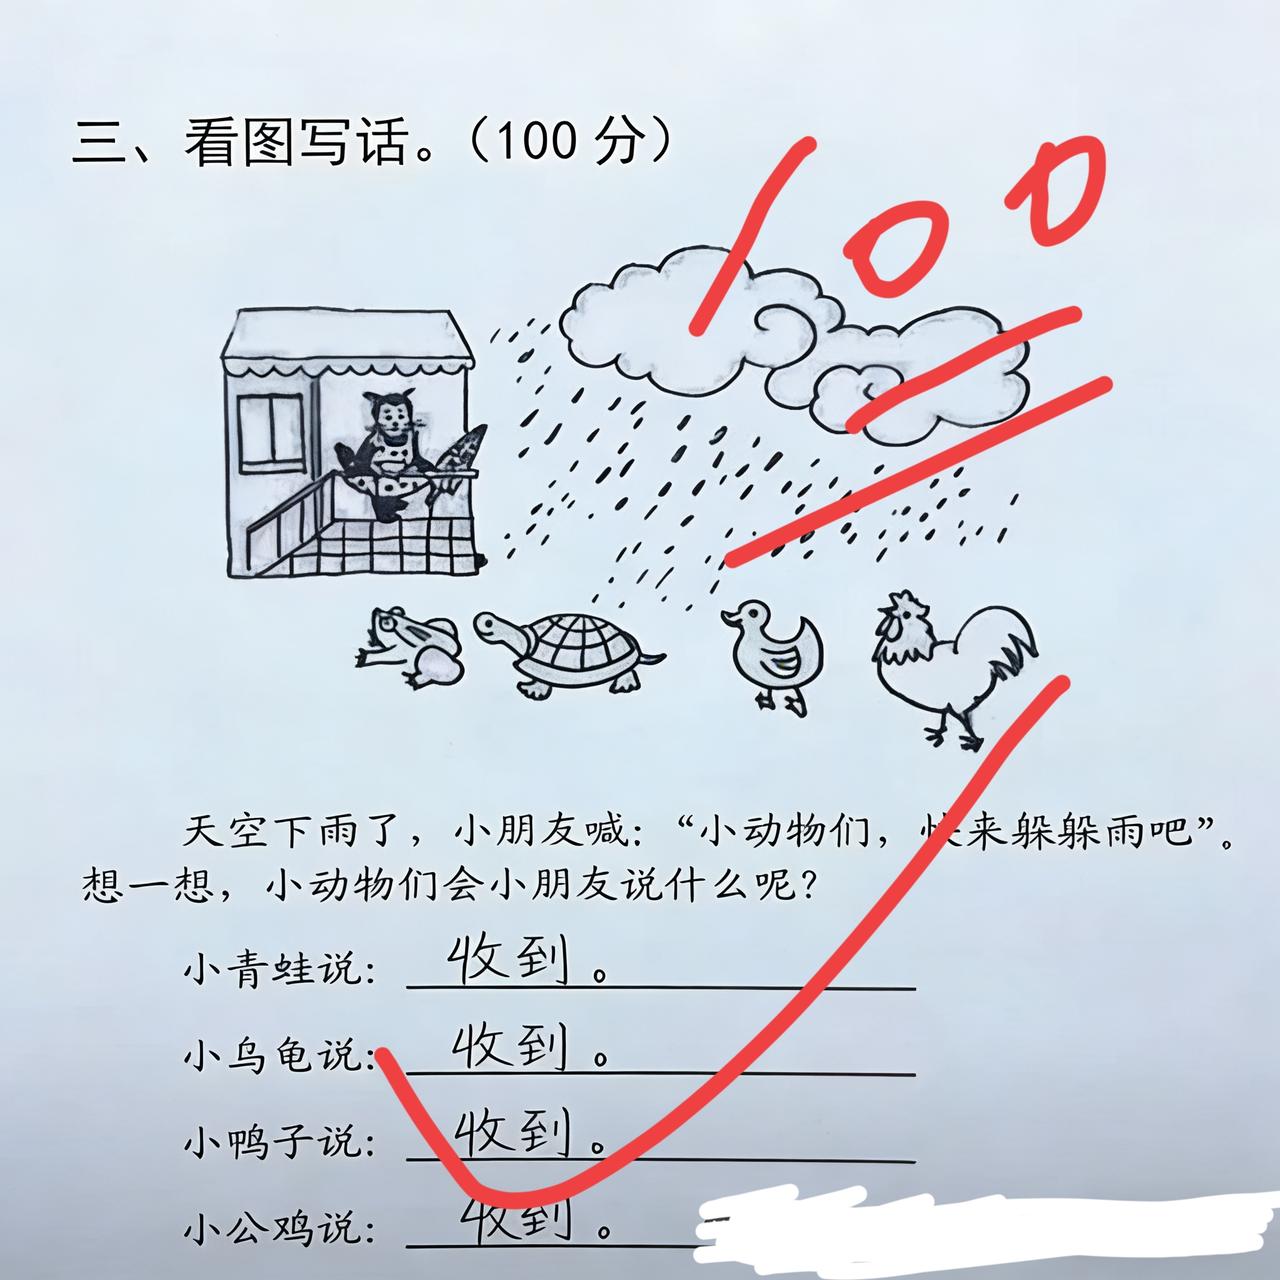 三、看图写话。（100 分）
100
天空下雨了，小朋友喊：“小动物们，快来躲躲雨吧”。
想一想，小动物们会小朋友说什么呢？
小青蛙说：收到。
小乌龟说：收到。
小鸭子说：收到。
小公鸡说：收到。